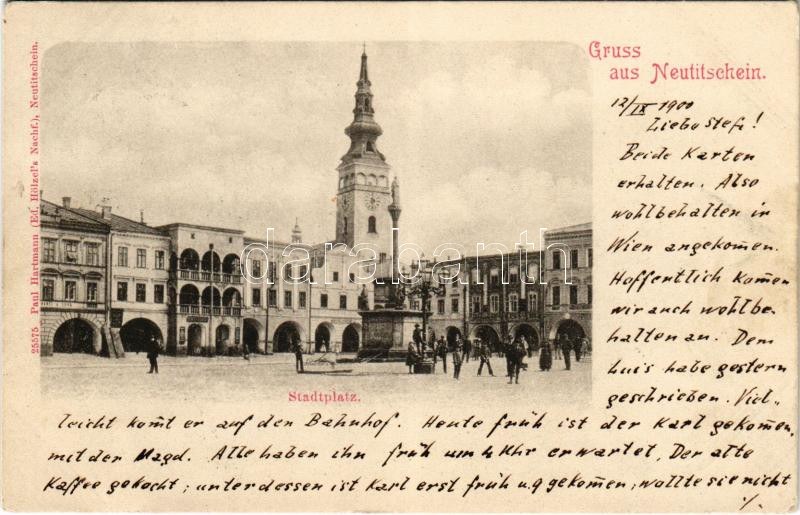 Gruss
aus Neutitschein.
25575 Paul Hartmann (Ed. Hölzel's Nachf.), Neutitschein.
12/IX 1900
Liebe Stefi!
Beide Karten
erhalten. Also
wohlbehalten in
Wien angekom̄en.
Hoffentlich kom̄en
wir auch wohlbe-
halten an. Dem
Luis habe gestern
geschrieben. Viel-
Stadtplatz.
leicht kom̄t er auf den Bahnhof. Heute früh ist der Karl gekom̄en,
mit der Magd. Alle haben ihn früh um 4 Uhr erwartet, Der alte
Kaffee gekocht; unterdessen ist Karl erst früh u. 9 gekom̄en; wollte sie nicht
./.
darabanth